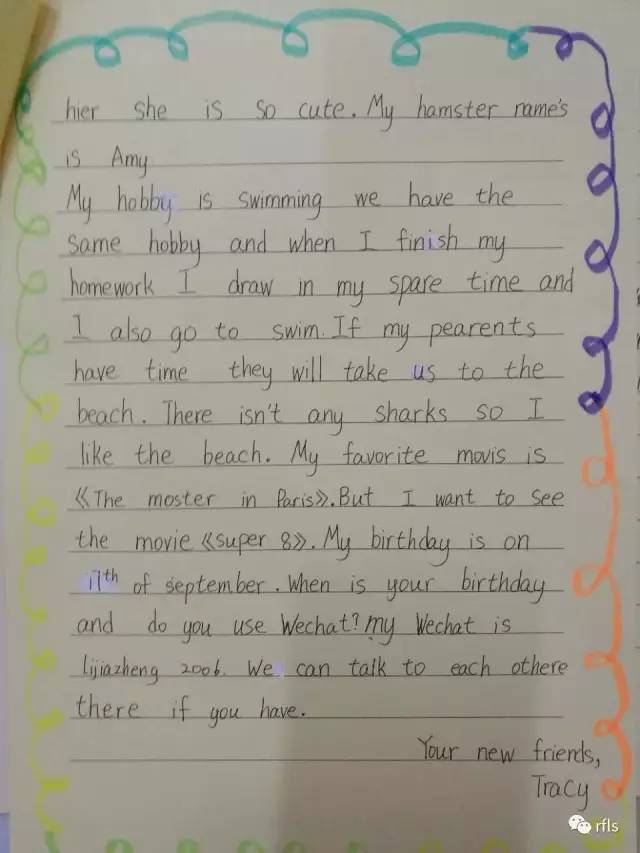 hier she is so cute. My hamster name's
is Amy
My hobby is swimming we have the
same hobby and when I finish my
homework I draw in my spare time and
I also go to swim. If my pearents
have time they will take us to the
beach. There isn't any sharks so I
like the beach. My favorite movis is
《The moster in Paris》. But I want to see
the movie 《super 8》. My birthday is on
17th of september. When is your birthday
and do you use Wechat? my Wechat is
lijiazheng 2006. We can talk to each othere
there if you have.
Your new friends,
Tracy
rfls